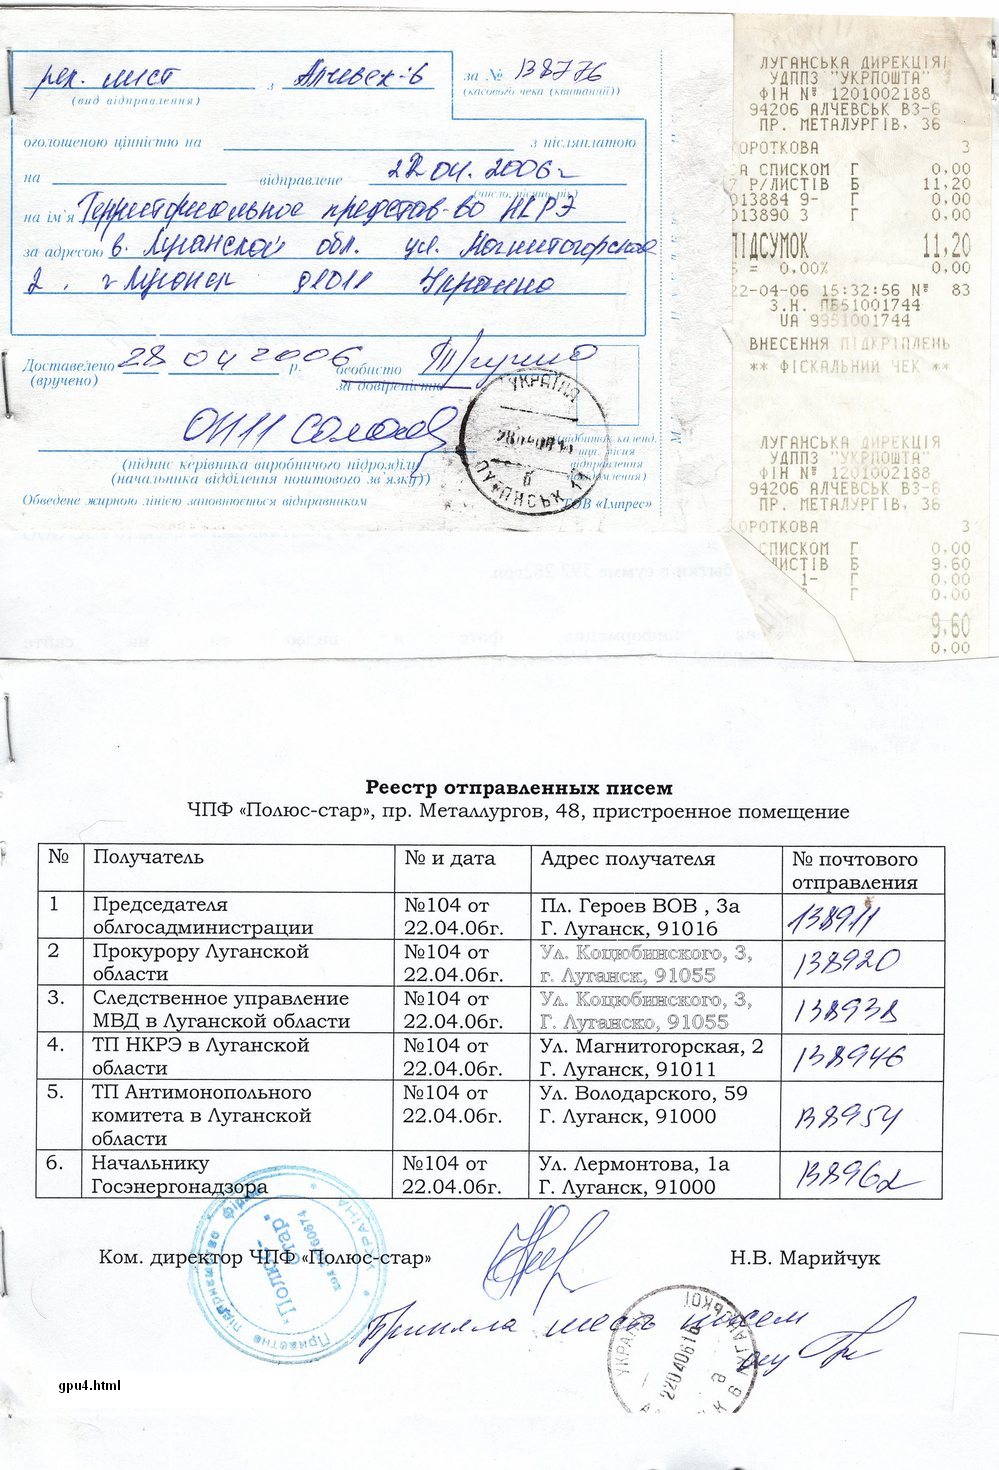 рек. лист з Алчевск-6 за № 138776
(вид відправлення) (касового чека (квитанції))
оголошеною цінністю на з післяплатою
на відправлене 22.04.2006г
(число, місяць, рік)
на ім'я Территориальное представ-во НКРЭ
за адресою в Луганской обл. ул. Магнитогорская
2, г Луганск 91011 Украина
Доставлено 28 04 2006 р. особисто
(вручено) за довіреністю
(підпис керівника виробничого підрозділу
(начальника відділення поштового зв'язку))
відбиток календ.
Обведене жирною лінією заповнюється відправником ТОВ «Імпрес»
УКРАЇНА
ЛУГАНСЬК 11
б
ЛУГАНСЬКА ДИРЕКЦІЯ
УДППЗ "УКРПОШТА"
ФІН № 1201002188
94206 АЛЧЕВСЬК ВЗ-6
ПР. МЕТАЛУРГІВ, 36
ОРОТКОВА 3
А СПИСКОМ Г 0.00
7 Р/ЛИСТІВ Б 11.20
013884 9- Г 0.00
013890 3 Г 0.00
ПІДСУМОК 11,20
= 0.00% 0.00
22-04-06 15:32:56 № 83
З.Н. ПБ51001744
UA 9951001744
ВНЕСЕННЯ ПІДКРІПЛЕНЬ
** ФІСКАЛЬНИЙ ЧЕК **
ЛУГАНСЬКА ДИРЕКЦІЯ
УДППЗ "УКРПОШТА"
ФІН № 1201002188
94206 АЛЧЕВСЬК ВЗ-6
ПР. МЕТАЛУРГІВ, 36
ОРОТКОВА 3
СПИСКОМ Г 0.00
ЛИСТІВ Б 9.60
1- Г 0.00
Г 0.00
9,60
0.00
Реестр отправленных писем
ЧПФ «Полюс-стар», пр. Металлургов, 48, пристроенное помещение
№ Получатель № и дата Адрес получателя № почтового
отправления
1 Председателя №104 от Пл. Героев ВОВ , 3а 138911
облгосадминистрации 22.04.06г. Г. Луганск, 91016
2 Прокурору Луганской №104 от Ул. Коцюбинского, 3, 138920
области 22.04.06г. г. Луганск, 91055
3. Следственное управление №104 от Ул. Коцюбинского, 3, 138938
МВД в Луганской области 22.04.06г. Г. Луганско, 91055
4. ТП НКРЭ в Луганской №104 от Ул. Магнитогорская, 2 138946
области 22.04.06г. Г. Луганск, 91011
5. ТП Антимонопольного №104 от Ул. Володарского, 59 138954
комитета в Луганской 22.04.06г. Г. Луганск, 91000
области
6. Начальнику №104 от Ул. Лермонтова, 1а 138962
Госэнергонадзора 22.04.06г. Г. Луганск, 91000
Ком. директор ЧПФ «Полюс-стар» Н.В. Марийчук
Приняла шесть писем
УКРАЇНА
2204061б
gpu4.html